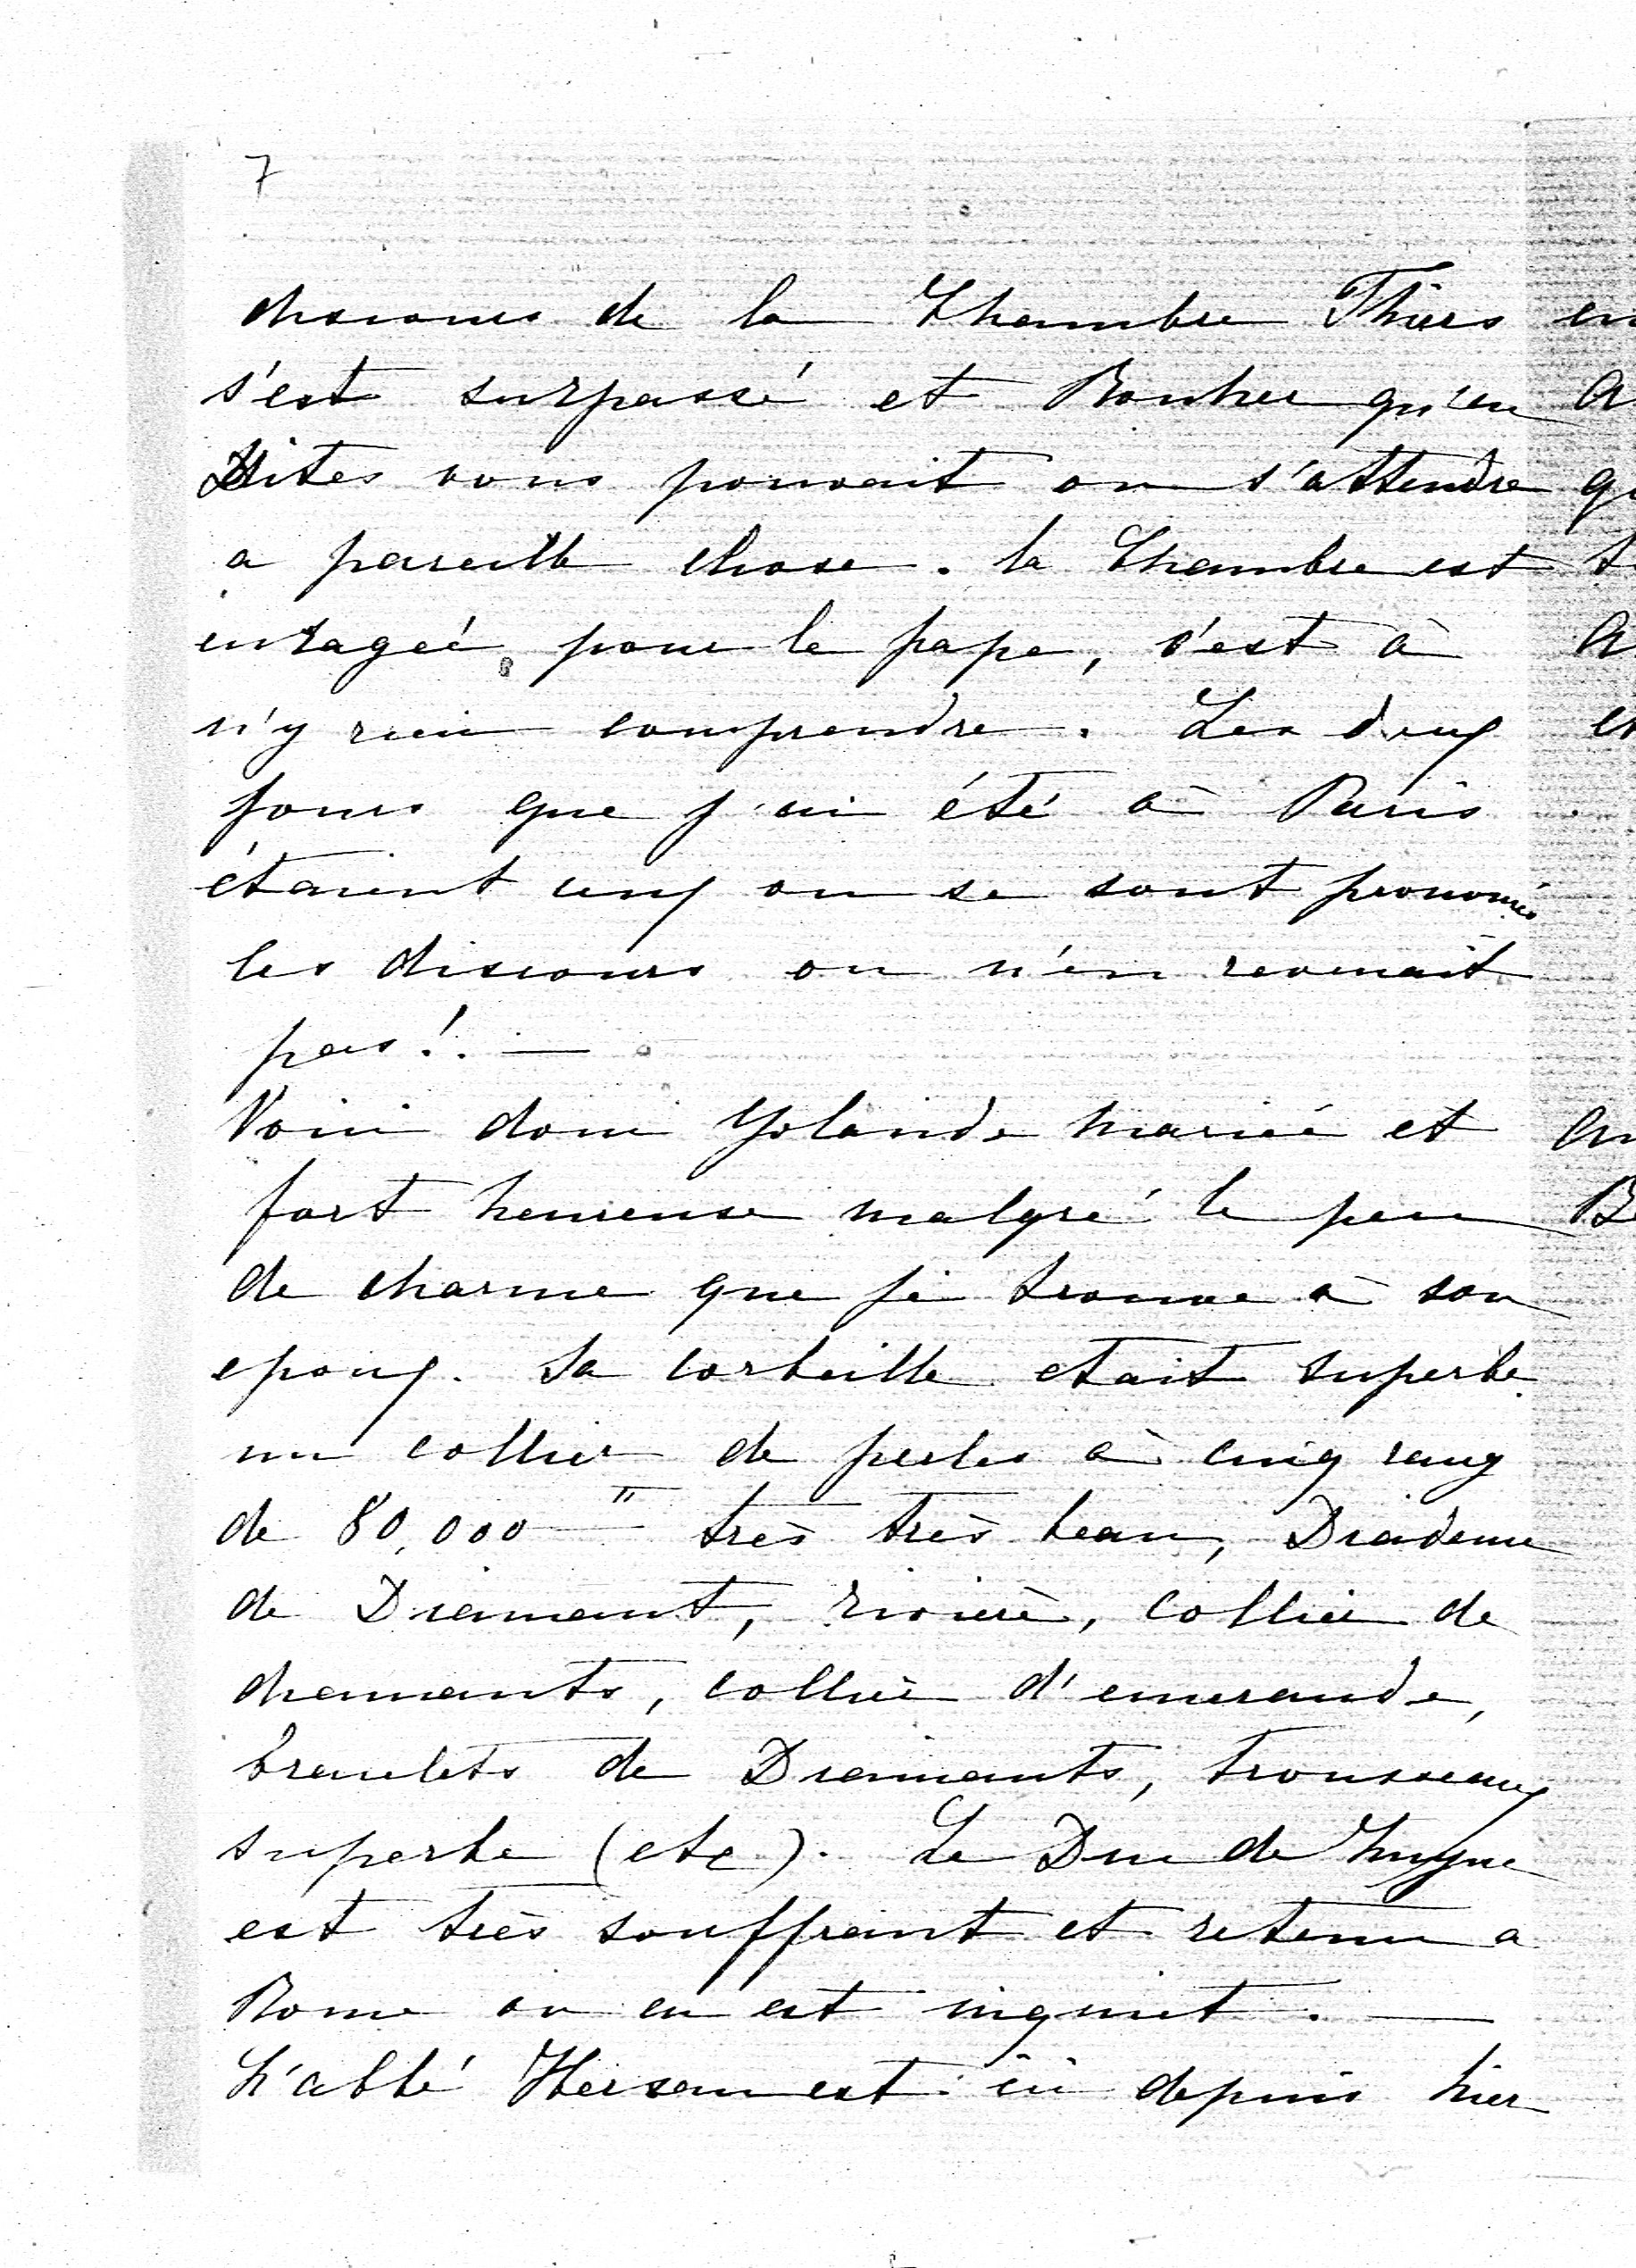 7
discours de la Chambre Thiers
s'est surpassé et Rouher qu'en
Dites vous pouvait on s'attendre
a pareille chose. la Chambre est
enrageé pour le pape, c'est à
n'y rien comprendre. Les deux
jours que j'ai été à Paris
étaient ceux ou se sont prononcés
les discours on n'en revenait
pas!. —
Voici donc Yolande mariée et
fort heureuse malgré le peu
de charme que je trouve à son
epoux. Sa corbeille etait superbe
un collier de perles à cinq rang
de 80,000 très très beau, Diademe
de Diamant, rivière, collier de
diamants, collier d'emeraude,
bracelets de Diamants, trousseaux
superbe (etc). Le Duc de Luynes
est très souffrant et retenu a
Rome on en est inquiet. —
L'abbé Hersan est ici depuis hier